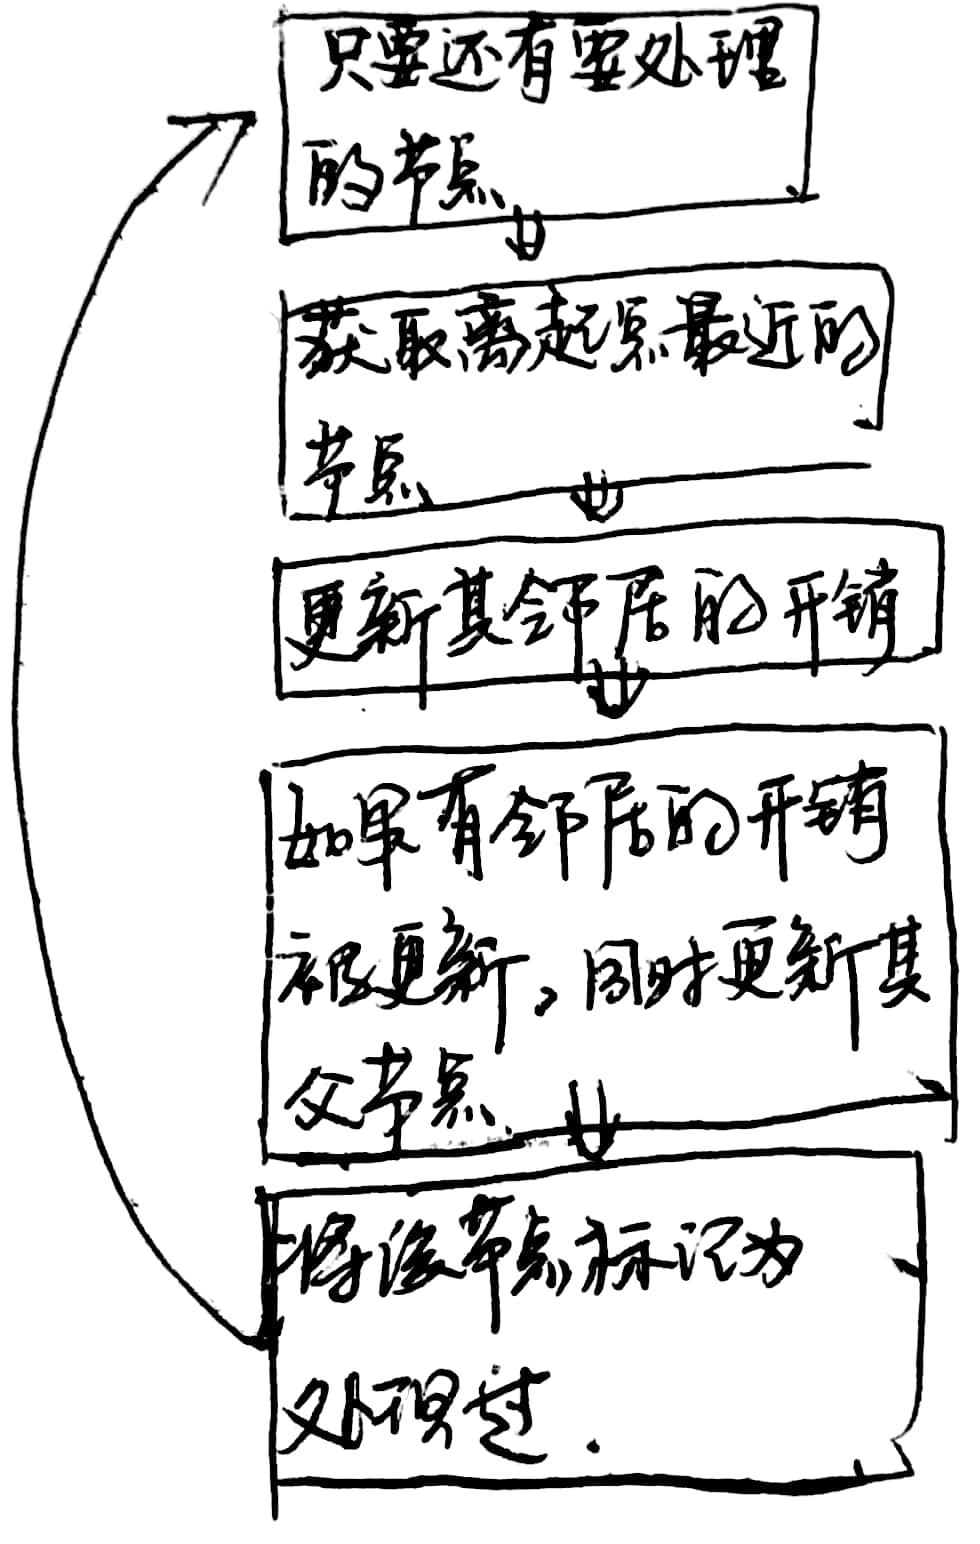 只要还有要处理
的节点
获取离起点最近的
节点
更新其邻居的开销
如果有邻居的开销
被更新，同时更新其
父节点
将该节点标记为
处理过.